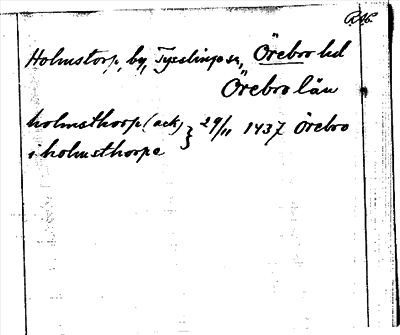 Holmstorp, by, Tysslinge sn, Örebro hd
Örebro län
holmsthorp (ack) } 29/11 1437 Örebro
i holmsthorpe